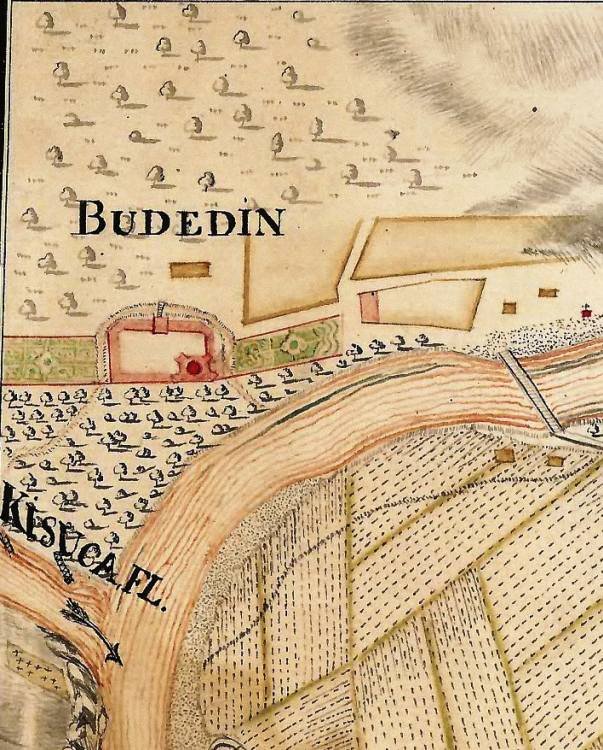 BUDEDÍN
KISUCA FL.